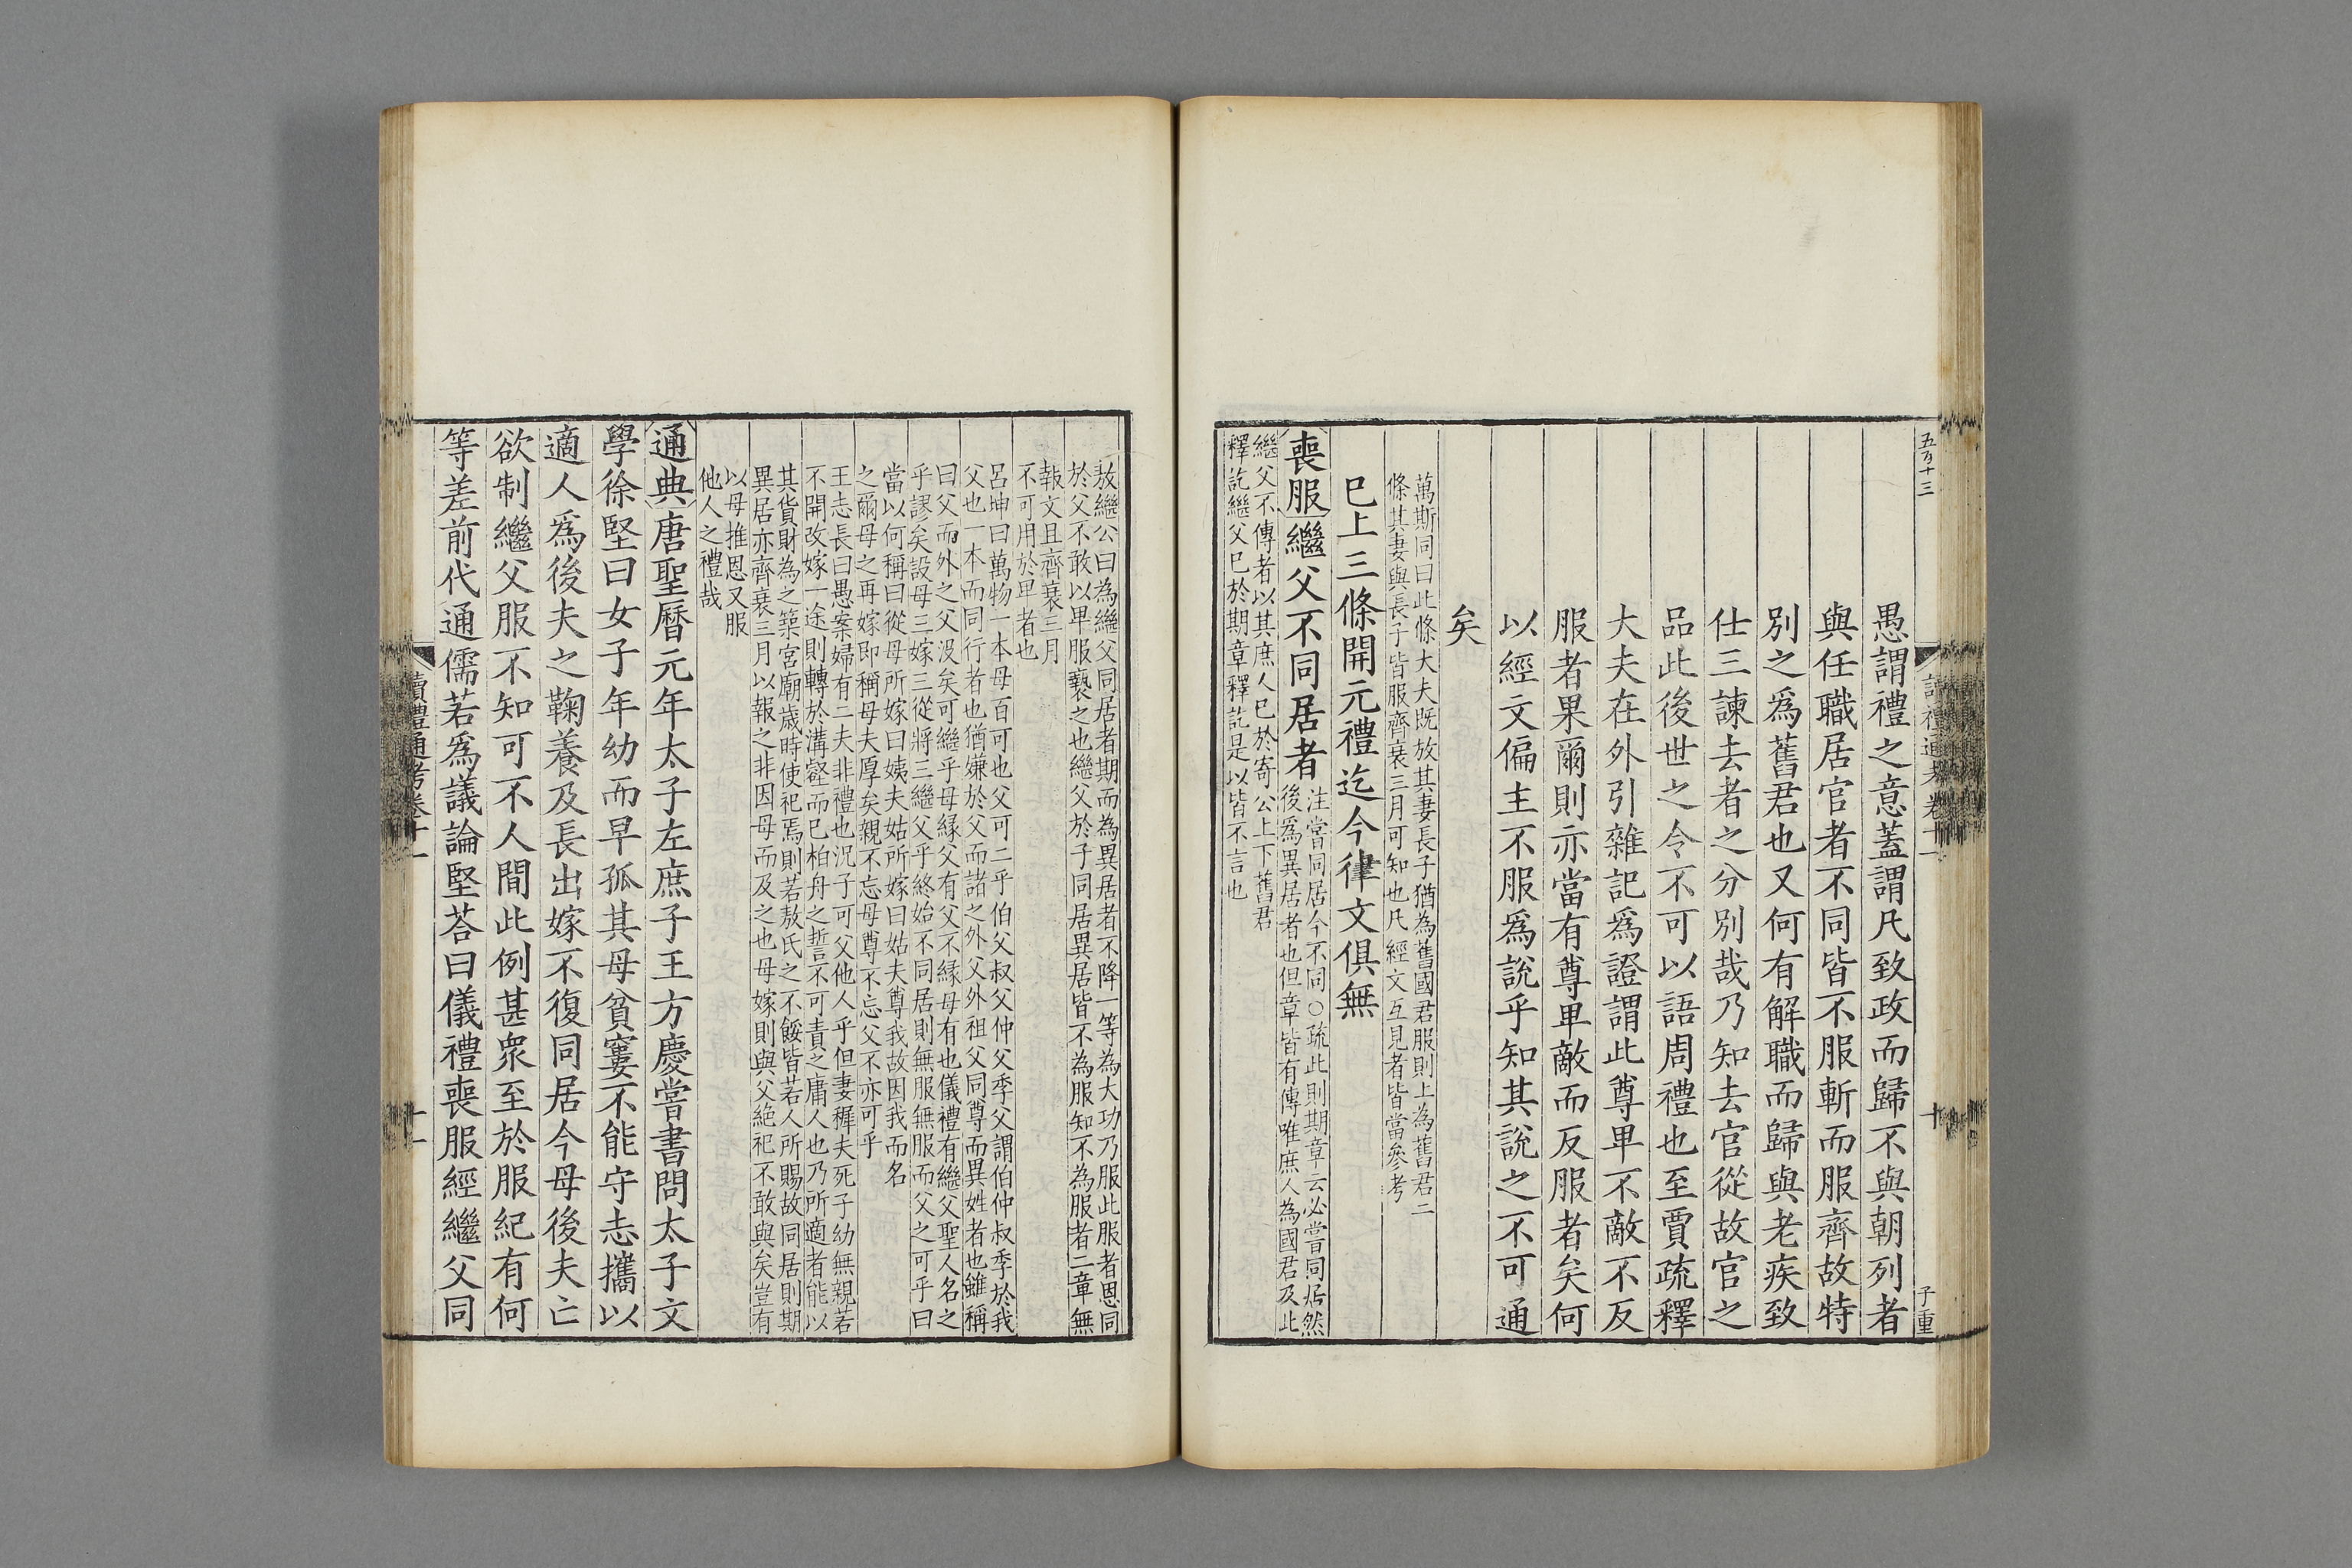 五百十三
讀禮通考卷十一
十
子重
愚謂禮之意蓋謂凡致政而歸不與朝列者
與任職居官者不同皆不服斬而服齊故特
別之爲舊君也又何有解職而歸與老疾致
仕三諫去者之分別哉乃知去官從故官之
品此後世之令不可以語周禮也至賈疏釋
大夫在外引雜記爲證謂此尊卑不敵不反
服者果爾則亦當有尊卑敵而反服者矣何
以經文偏主不服爲說乎知其說之不可通
矣
萬斯同曰此條大夫既放其妻長子猶為舊國君服則上為舊君二
條其妻與長子皆服齊衰三月可知也凡經文互見者皆當參考
已上三條開元禮迄今律文俱無
喪服繼父不同居者
注當同居今不同○疏此則期章云必當同居然
後為異居者也但章皆有傳唯庶人為國君及此
繼父不傳者以其庶人已於寄公上下舊君
釋訖繼父已於期章釋訖是以皆不言也
敖繼公曰為繼父同居者期而為異居者不降一等為大功乃服此服者恩同
於父不敢以卑服褻之也繼父於子同居異居皆不為服知不為服者二章無
報文且齊衰三月
不可用於卑者也
呂坤曰萬物一本母百可也父可二乎伯父叔父仲父季父謂伯仲叔季於我
父也一本而同行者也猶嫌於父而諸之外父外祖父同尊而異姓者也雖稱
曰父而外之父沒矣可繼乎母緣父有父不緣母有也儀禮有繼父聖人名之
乎謬矣設母三嫁三從將三繼父乎終始不同居則無服無服而父之可乎曰
當以何稱曰從母所嫁曰姨夫姑所嫁曰姑夫尊我故因我而名
之爾母之再嫁即稱母夫厚矣親不忘母尊不忘父不亦可乎
王志長曰愚案婦有二夫非禮也況子可父他人乎但妻穉夫死子幼無親若
不開改嫁一途則轉於溝壑而已柏舟之誓不可責之庸人也乃所適者能以
其貨財為之築宮廟歲時使祀焉則若敖氏之不餒皆若人所賜故同居則期
異居亦齊衰三月以報之非因母而及之也母嫁則與父絕祀不敢與矣豈有
以母推恩又服
他人之禮哉
通典唐聖曆元年太子左庶子王方慶嘗書問太子文
學徐堅曰女子年幼而早孤其母貧窶不能守志攜以
適人爲後夫之鞠養及長出嫁不復同居今母後夫亡
欲制繼父服不知可不人間此例甚衆至於服紀有何
等差前代通儒若爲議論堅荅曰儀禮喪服經繼父同
讀禮通考卷十一
十一